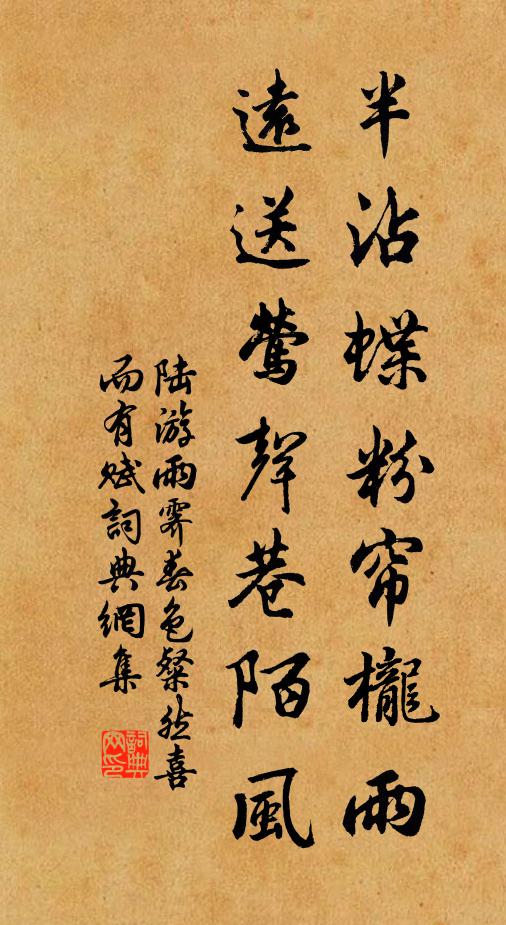 半沾蝶粉帘櫳雨
遠送鶯聲巷陌風
陆游雨霽春色粲然喜
而有赋詞典網集
詞典
網印